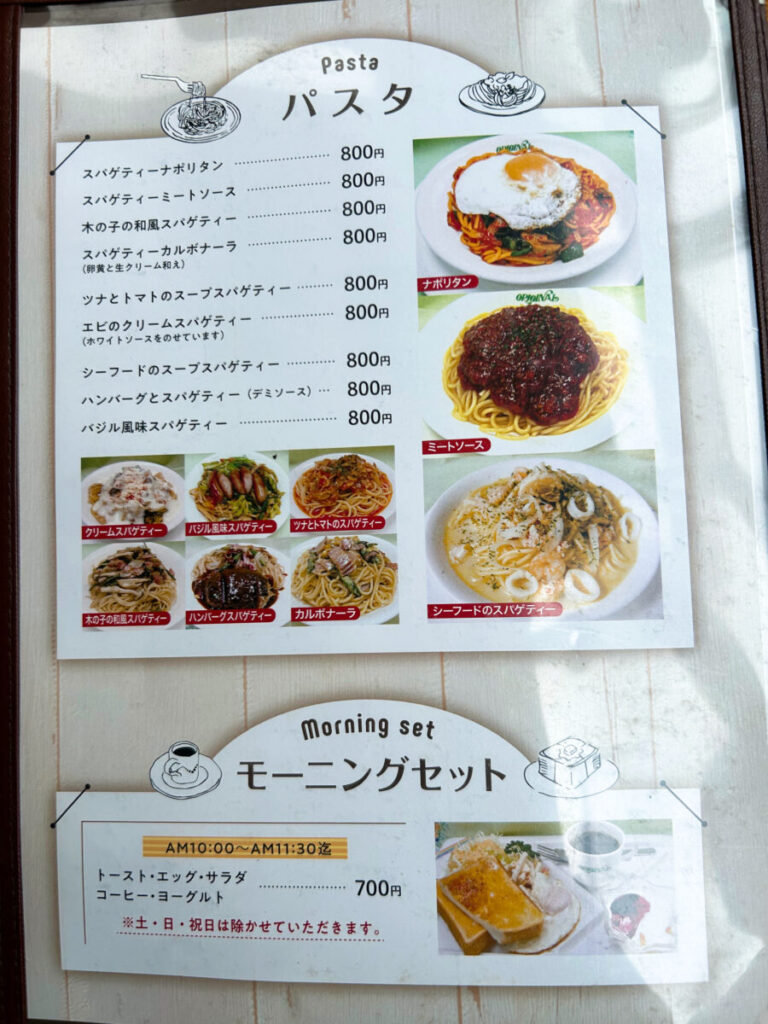 Pasta
パスタ
スパゲティーナポリタン 800円
スパゲティーミートソース 800円
木の子の和風スパゲティー 800円
スパゲティーカルボナーラ 800円
(卵黄と生クリーム和え)
ツナとトマトのスープスパゲティー 800円
エビのクリームスパゲティー 800円
(ホワイトソースをのせています)
シーフードのスープスパゲティー 800円
ハンバーグとスパゲティー(デミソース) 800円
バジル風味スパゲティー 800円
ORIGINAL
ナポリタン
ORIGINAL
ミートソース
シーフードのスパゲティー
クリームスパゲティー
バジル風味スパゲティー
ツナとトマトのスパゲティー
木の子の和風スパゲティー
ハンバーグスパゲティー
カルボナーラ
Morning set
モーニングセット
AM10:00〜AM11:30迄
トースト・エッグ・サラダ
コーヒー・ヨーグルト 700円
※土・日・祝日は除かせていただきます。